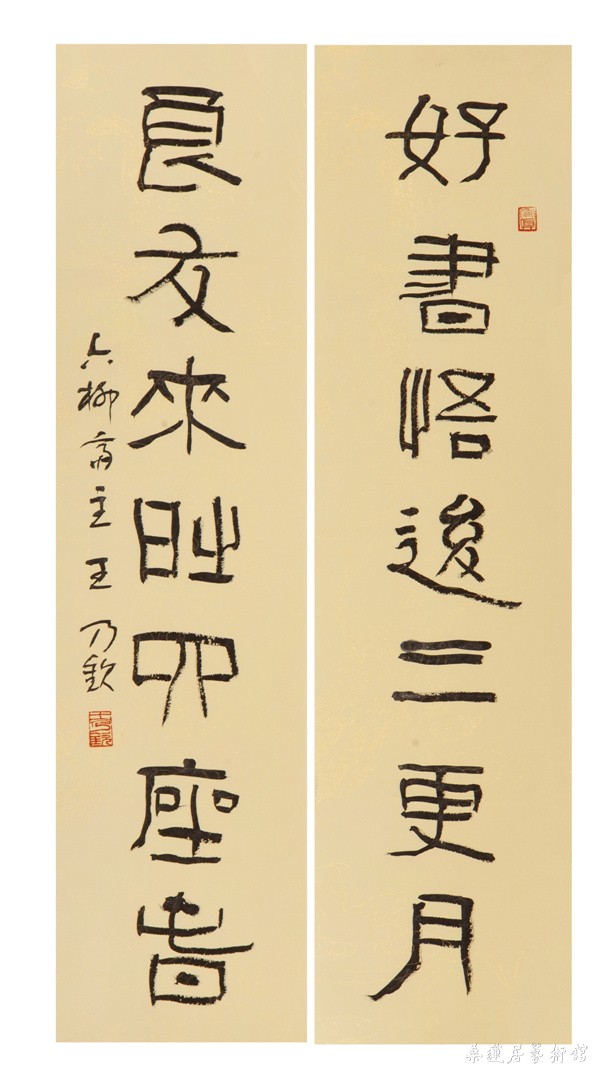 好書悟後三更月
良友來時四座春
六柳齋主王乃欽
桑蓮居藝術館